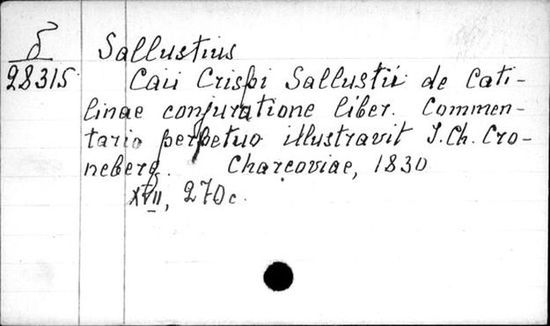 δ
28315
Sallustius
Caii Crispi Sallustii de Cati-
linae conjuratione liber. Commen-
tario perpetuo illustravit I. Ch. Cro-
neberg. Charcoviae, 1830
XVII, 270 c.